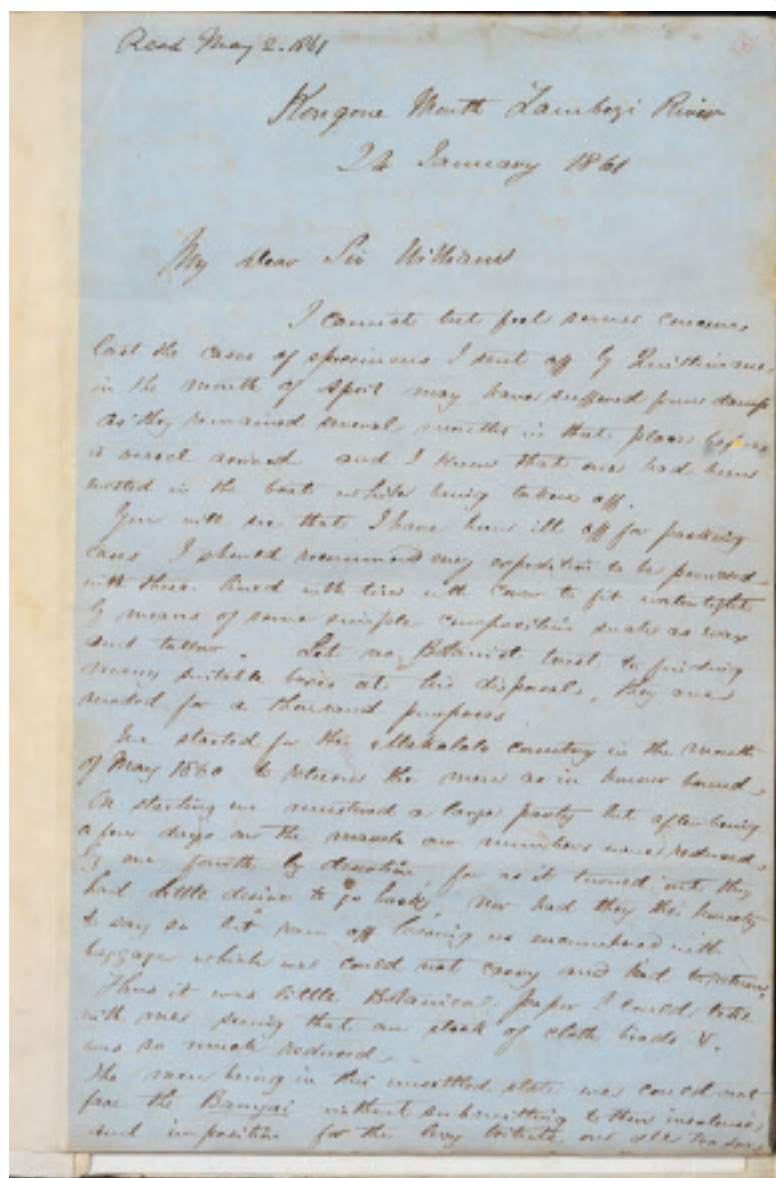 Read May 2. 1861
Kongone Mouth Zambezi River
24 January 1861
My dear Sir William
I cannot but feel some concern
lest the cases of specimens I sent off by Quillimane
in the month of April may have suffered from damp
as they remained several months in that place before
a vessel arrived and I know that one had been
wetted in the boat while being taken off.
You will see that I have been ill off for packing
cases I should recommend any expedition to be provided
with those lined with tin with cover to fit water tight
by means of some simple composition such as wax
and tallow. Let no Botanist trust to finding
many suitable boxes at his disposal, they are
needed for a thousand purposes
We started for the Makololo country in the month
of May 1860 to return the men as in honor bound,
On starting we mustered a large party but after being
a few days on the march our numbers were reduced
by one fourth by desertion for as it turned out they
had little desire to go back, nor had they the honesty
to say so but ran off leaving us encumbered with
baggage which we could not carry and had to return,
Thus it was little Botanical paper I could take
with me seeing that our stock of cloth beads &.
was so much reduced
The men being in this unsettled state we could not
face the Banyai without submitting to their insolence
and imposition for the tribute our old traders